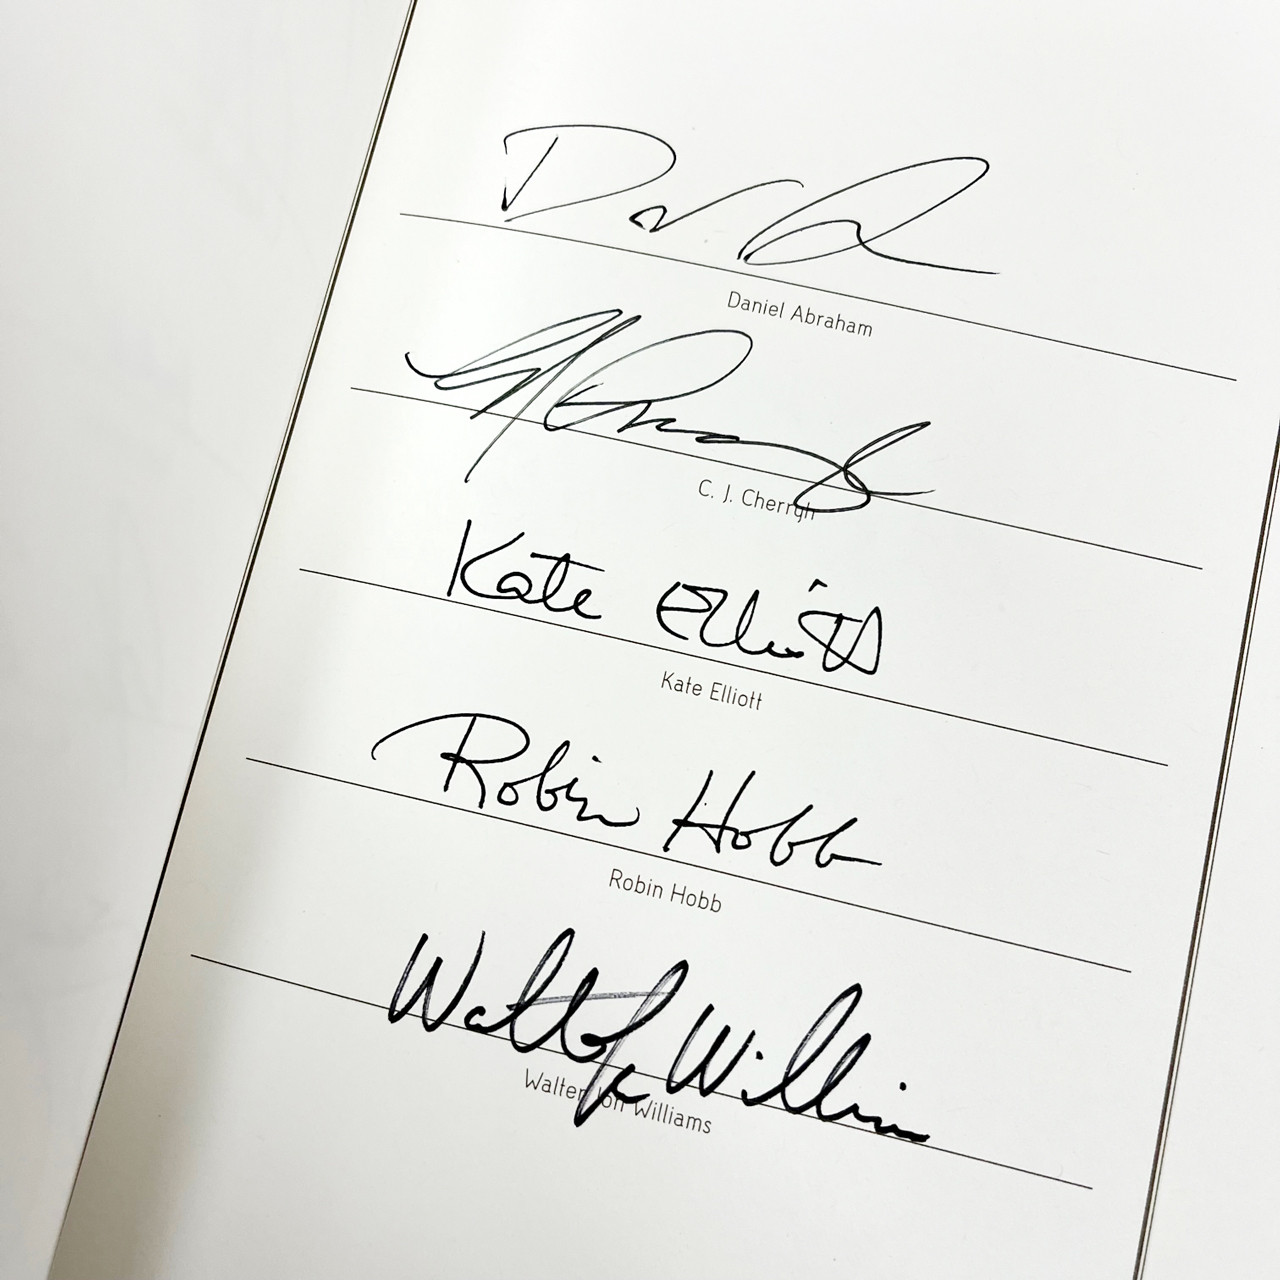 Daniel Abraham
C. J. Cherryh
Kate Elliott
Kate Elliott
Robin Hobb
Robin Hobb
Walter Jon Williams